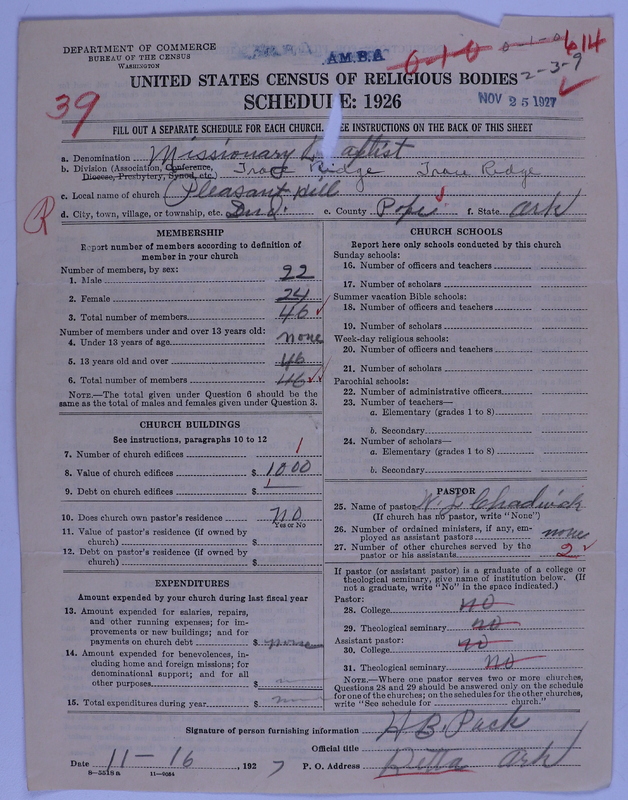 DEPARTMENT OF COMMERCE
BUREAU OF THE CENSUS
WASHINGTON
A.M.B.A
0-1-0 0-1-0 614
2-3-9
UNITED STATES CENSUS OF RELIGIOUS BODIES
39 SCHEDULE: 1926
NOV 25 1927
FILL OUT A SEPARATE SCHEDULE FOR EACH CHURCH. SEE INSTRUCTIONS ON THE BACK OF THIS SHEET
a. Denomination Missionary Baptist
b. Division (Association, Conference, Diocese, Presbytery, Synod, etc.) Ridge Ridge
c. Local name of church Pleasant Hill
d. City, town, village, or township, etc. e. County Pope f. State Ark
R
MEMBERSHIP
Report number of members according to definition of
member in your church
Number of members, by sex:
1. Male 22
2. Female 24
3. Total number of members 46
Number of members under and over 13 years old:
4. Under 13 years of age none
5. 13 years old and over 46
6. Total number of members 46
NOTE.—The total given under Question 6 should be
same as the total of males and females given under Question 3.
CHURCH BUILDINGS
See instructions, paragraphs 10 to 12
7. Number of church edifices 1
8. Value of church edifices $ 1000
9. Debt on church edifices $
10. Does church own pastor's residence no
Yes or No
11. Value of pastor's residence (if owned by
church) $
12. Debt on pastor's residence (if owned by
church) $
EXPENDITURES
Amount expended by your church during last fiscal year
13. Amount expended for salaries, repairs,
and other running expenses; for im-
provements or new buildings; and for
payments on church debt $ none
14. Amount expended for benevolences, in-
cluding home and foreign missions; for
denominational support; and for all
other purposes $
15. Total expenditures during year $
CHURCH SCHOOLS
Report here only schools conducted by this church
Sunday schools:
16. Number of officers and teachers
17. Number of scholars
Summer vacation Bible schools:
18. Number of officers and teachers
19. Number of scholars
Week-day religious schools:
20. Number of officers and teachers
21. Number of scholars
Parochial schools:
22. Number of administrative officers
23. Number of teachers—
a. Elementary (grades 1 to 8)
b. Secondary
24. Number of scholars—
a. Elementary (grades 1 to 8)
b. Secondary
PASTOR
25. Name of pastor W. J. Chadwick
(If church has no pastor, write "None")
26. Number of ordained ministers, if any, em-
ployed as assistant pastors none
27. Number of other churches served by the
pastor or his assistants 2
If pastor (or assistant pastor) is a graduate of a college or
theological seminary, give name of institution below. (If
not a graduate, write "No" in the space indicated.)
Pastor:
28. College no
29. Theological seminary no
Assistant pastor:
30. College no
31. Theological seminary no
NOTE.—Where one pastor serves two or more churches,
Questions 28 and 29 should be answered only on the schedule
for one of the churches; on the schedules for the other churches,
write "See schedule for church."
Signature of person furnishing information H B. Pack
Official title
Date 11-16, 1927 P. O. Address Ark
8-5518 a 11-9084